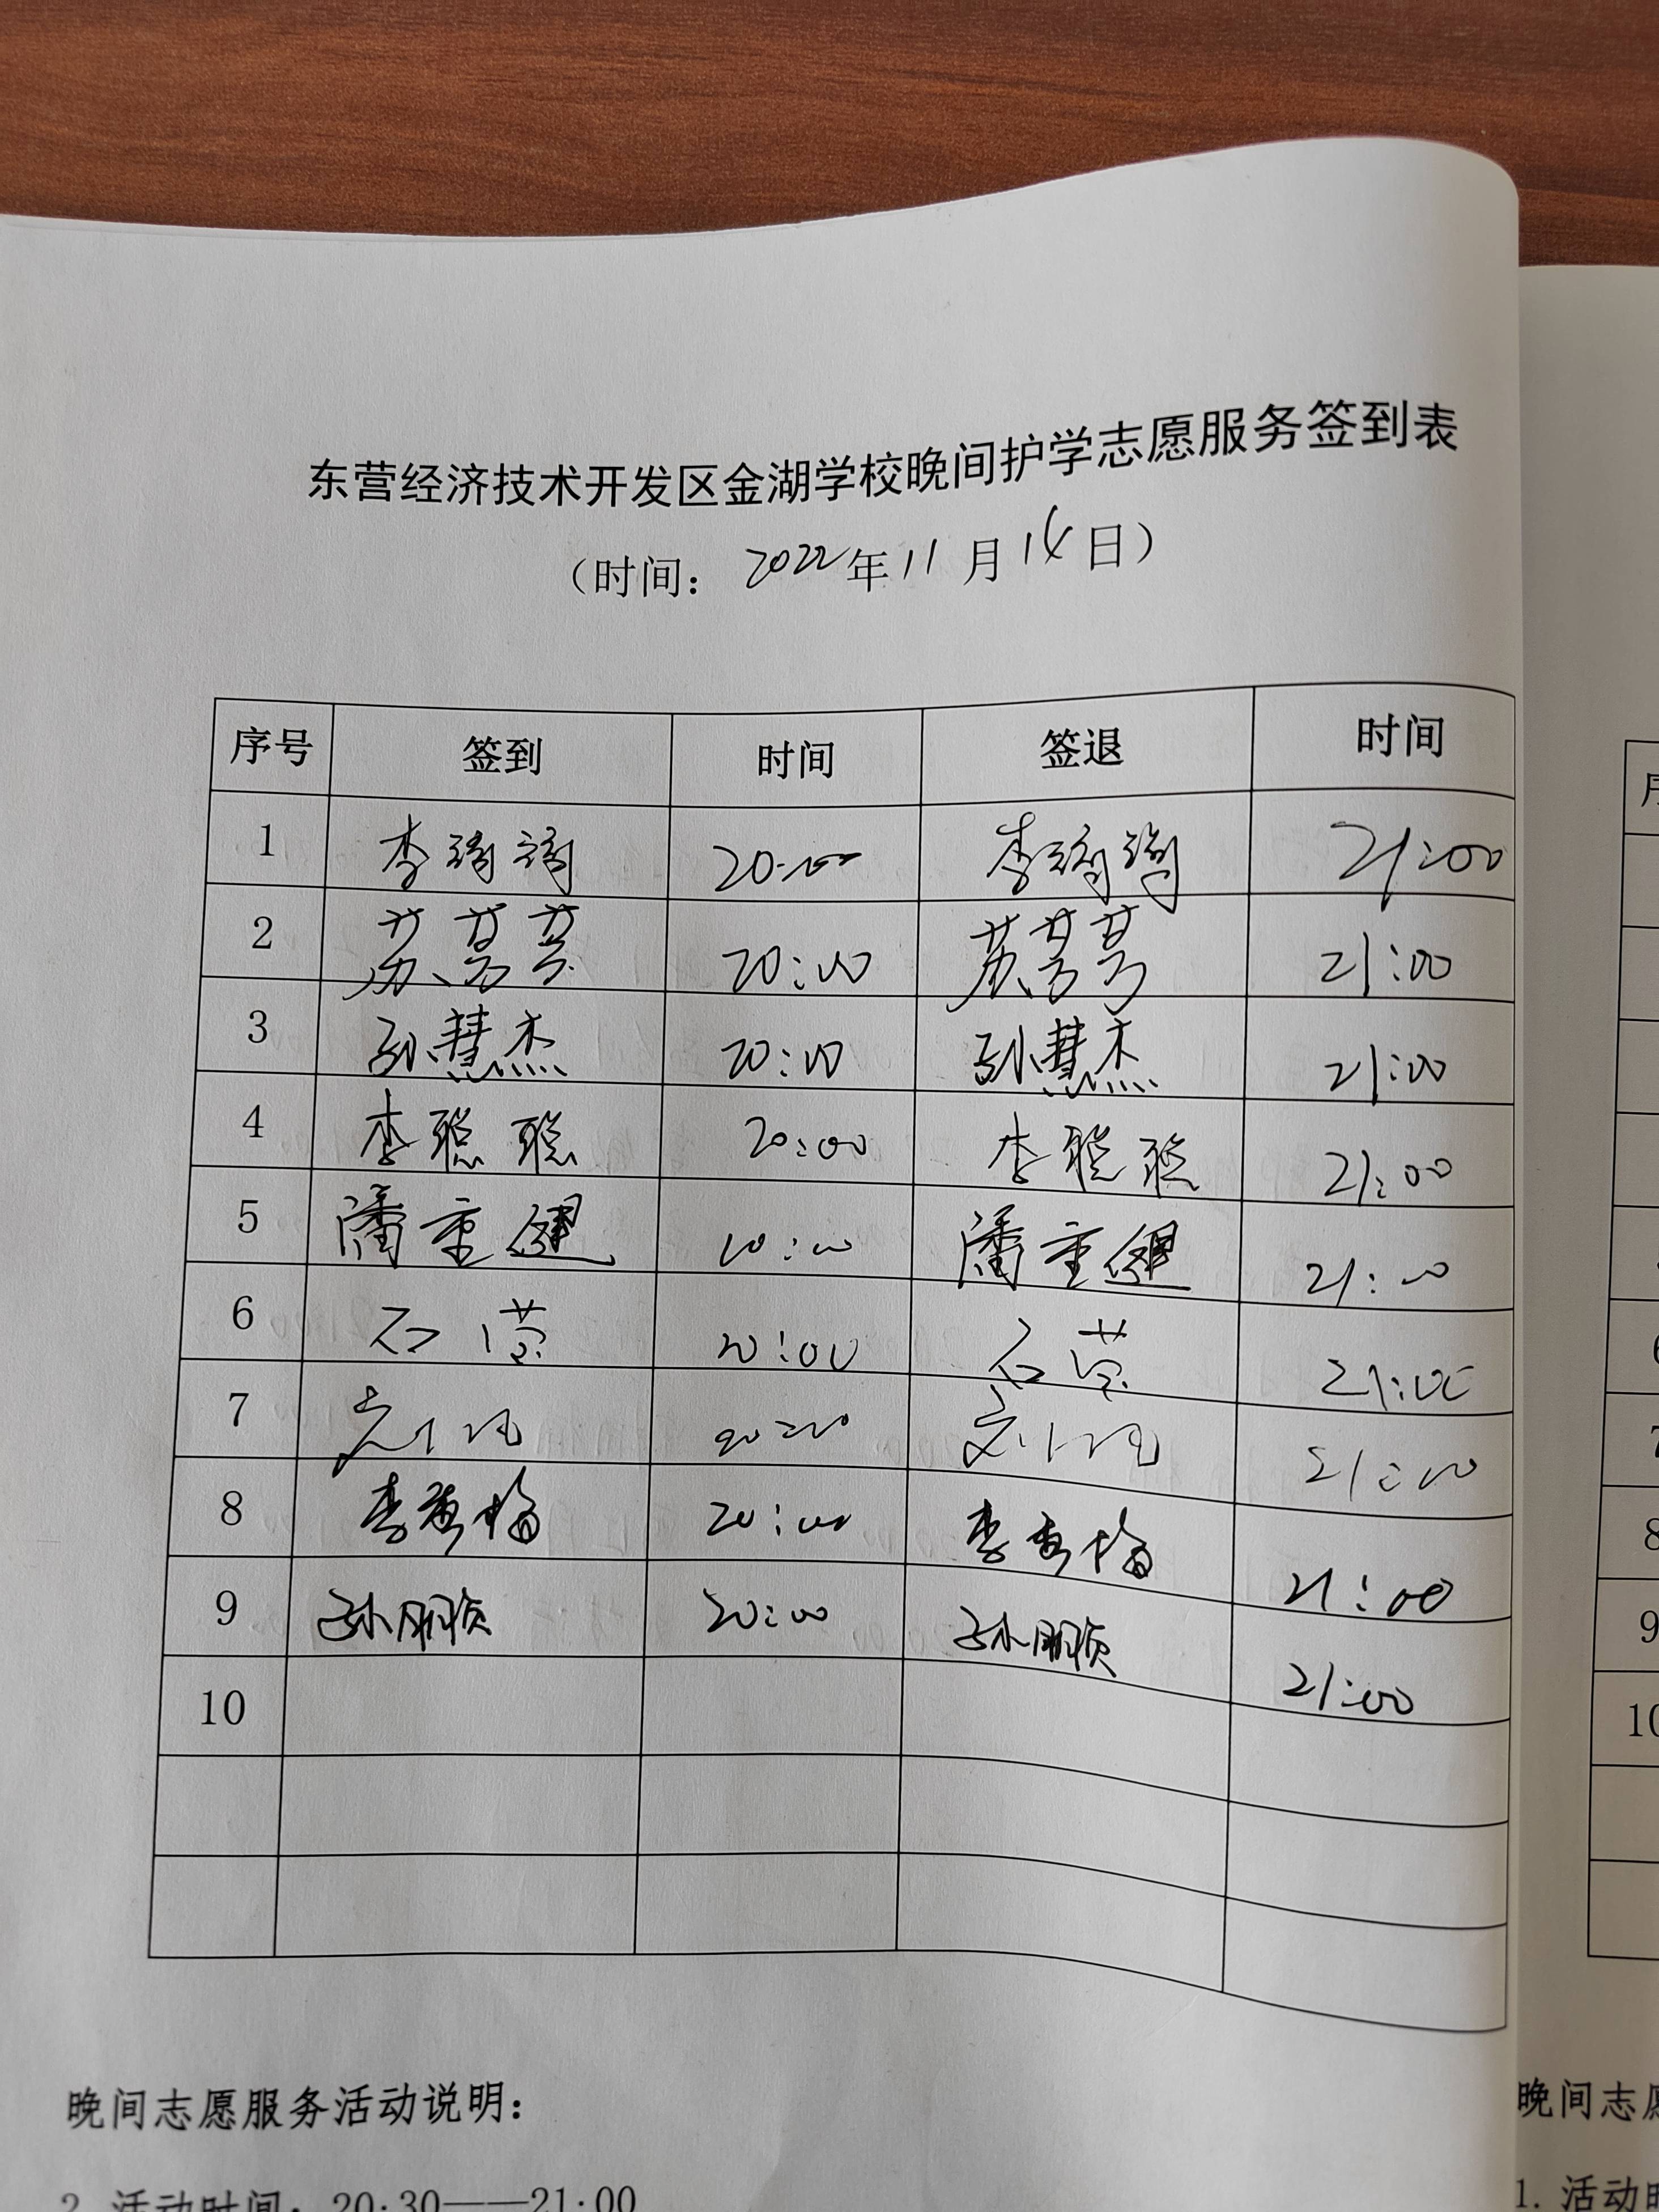 东营经济技术开发区金湖学校晚间护学志愿服务签到表
（时间：2022年11月14日）
序号 签到 时间 签退 时间
1 李琦琦 20:00 李琦琦 21:00
2 苏芳芳 20:00 苏芳芳 21:00
3 孙慧杰 20:00 孙慧杰 21:00
4 李聪聪 20:00 李聪聪 21:00
5 潘重健 20:00 潘重健 21:00
6 石营 20:00 石营 21:00
7 20:00 21:00
8 李梅 20:00 李梅 21:00
9 孙朋 20:00 孙朋 21:00
10
晚间志愿服务活动说明：
2.活动时间：20:30——21:00
8
9
10
晚间志愿
1.活动时